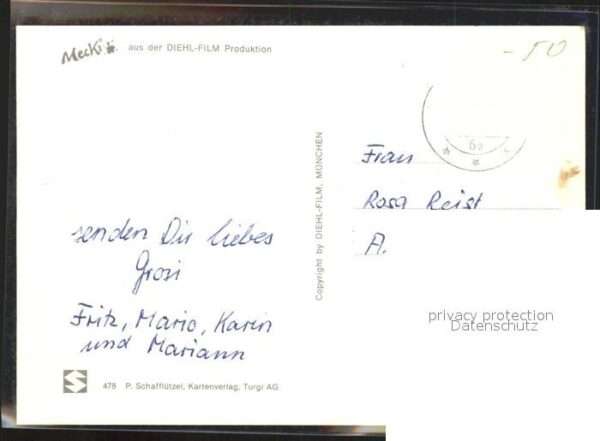 Mecki aus der DIEHL-FILM Produktion
- 50
Copyright by DIEHL-FILM, MÜNCHEN
senden Dir liebes
Grosi
Fritz, Mario, Karin
und Mariann
Frau
Rosa Reist
A.
privacy protection
Datenschutz
479 P. Schafflützel, Kartenverlag, Turgi AG